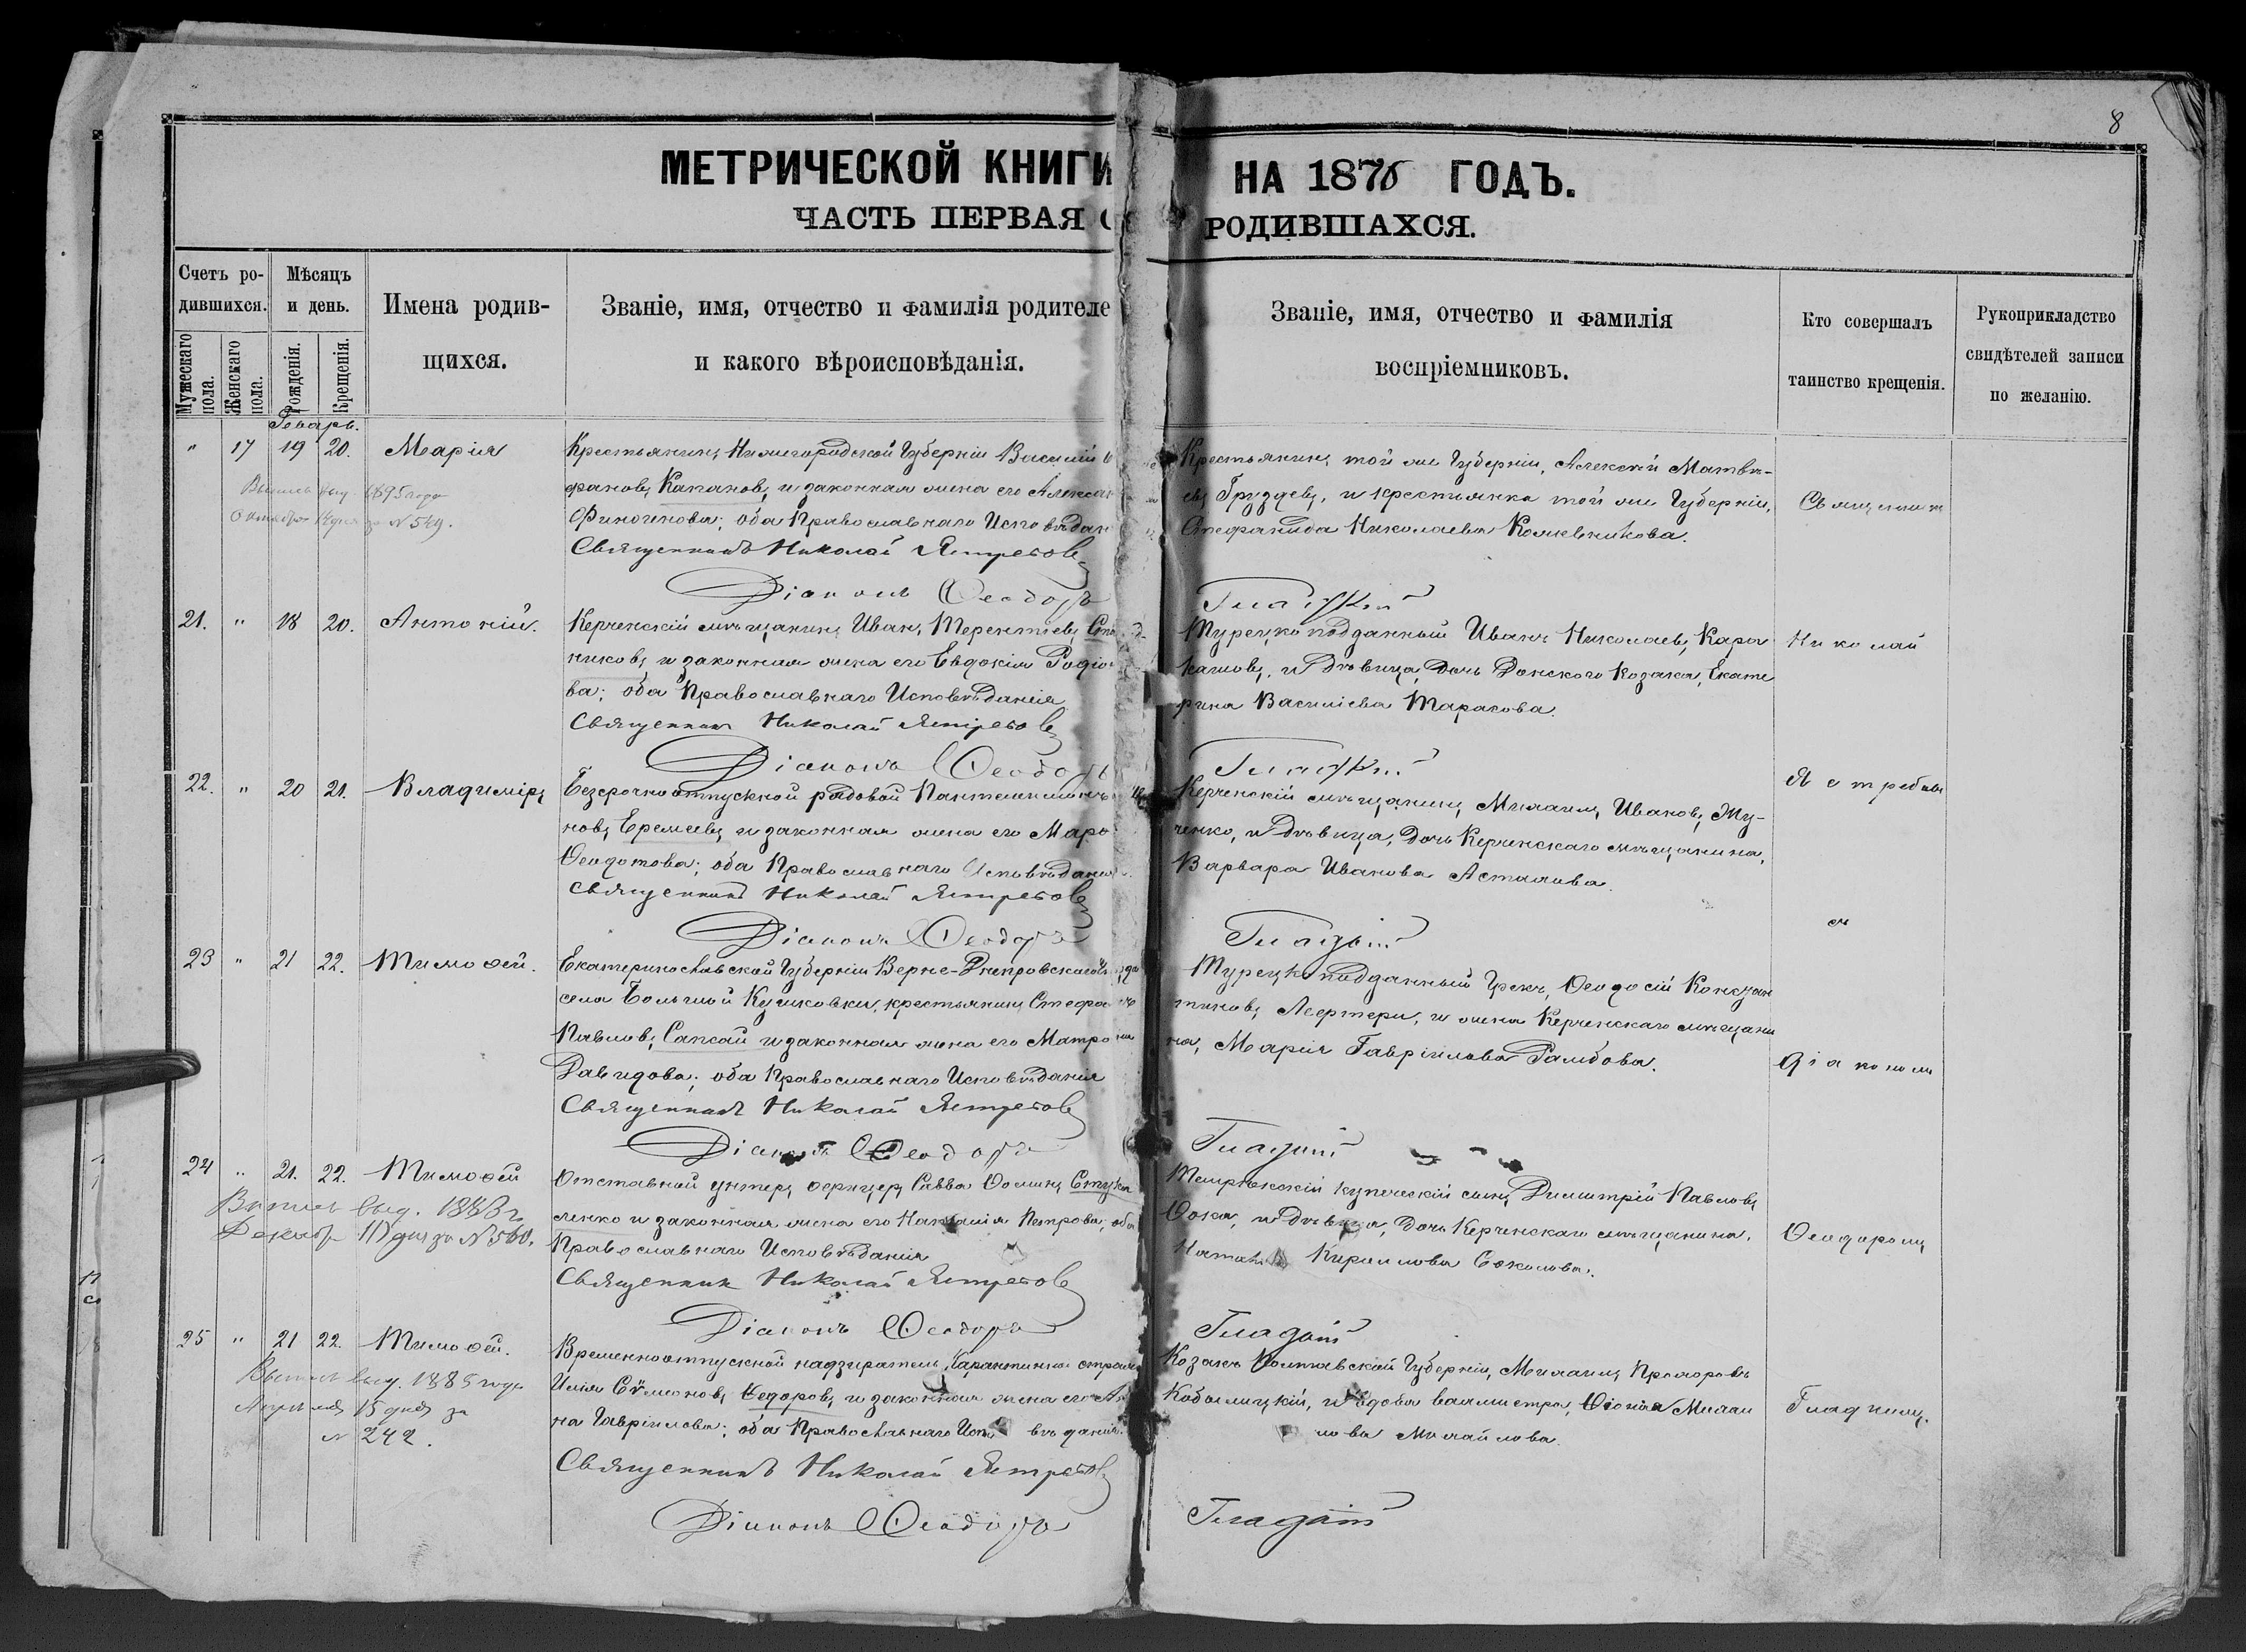 8
МЕТРИЧЕСКОЙ КНИГИ НА 1876 ГОДЪ.
ЧАСТЬ ПЕРВАЯ О РОДИВШАХСЯ.
Счетъ ро-
дившихся.
Мужескаго пола.
Женскаго пола.
Мѣсяцъ
и день.
Рожденія.
Крещенія.
Имена родив-
шихся.
Званіе, имя, отчество и фамилія родителе
и какого вѣроисповѣданія.
Званіе, имя, отчество и фамилія
воспріемниковъ.
Кто совершалъ
таинство крещенія.
Рукоприкладство
свидѣтелей записи
по желанію.
Генварь.
" 17 19 20. Марія
Крестьянинъ Нижегородской Губерніи Василій
фановъ Капановъ, и законная жена его Алексан
Финогенова; оба Православнаго Исповѣдан
Священникъ Николай Ястребовъ
Діаконъ Ѳеодоръ Гладкій
Крестьянинъ той же Губерніи, Алексѣй Матвѣ-
евъ Груздевъ, и крестьянка той же Губерніи,
Стефанида Николаева Кожевникова.
Выпись выд. 1895 года
Октября дня за № 549.
21. " 18 20. Антоній.
Керченскій мѣщанинъ Иванъ Терентіевъ
никовъ и законная жена его Евдокія Родіо
ва; оба Православнаго Исповѣданія
Священникъ Николай Ястребовъ
Діаконъ Ѳеодоръ Гладкій
Турецко подданный Иванъ Николаевъ Кара
кашовъ, и Дѣвица, Дочь Донскаго Козака, Екате
рина Василіева Таракова.
22. " 20 21. Владиміръ
Безсрочноотпускной рядовой Пантелеимонъ
новъ Еремеевъ и законная жена его Марѳ
Ѳеодотова; оба Православнаго Исповѣданія
Священникъ Николай Ястребовъ
Діаконъ Ѳеодоръ Гладкій
Керченскій мѣщанинъ Михаилъ Ивановъ Жу-
ченко, и Дѣвица, Дочь Керченскаго мѣщанина,
Варвара Иванова Астахова.
23 " 21 22. Тимоѳей.
Екатеринославской Губерніи Верхне-Днепровскаго уѣзда
села Большой Кушковки, крестьянинъ Стефанъ
Павловъ Сапсай и законная жена его Матрона
Давидова; оба Православнаго Исповѣданія
Священникъ Николай Ястребовъ
Діаконъ Ѳеодоръ Гладкій
Турецко подданный Грекъ, Ѳеодосій Констан
тиновъ Лефтери, и жена Керченскаго мѣщани
на, Марія Гавріилова Рамбова.
24 " 21. 22. Тимоѳей
Отставной унтеръ офицеръ Савва Ѳоминъ
ленко и законная жена его Наталія Петрова; оба
Православнаго Исповѣданія
Священникъ Николай Ястребовъ
Діаконъ Ѳеодоръ Гладкій
Темрюкскій купеческій сынъ Димитрій Павловъ
Ѳока, и Дѣвица, Дочь Керченскаго мѣщанина,
Кириллова Соколова.
Выпись выд.
Декабр дня за № 560.
25 " 21 22. Тимоѳей.
Временноотпускной надзиратель Карантинной стражи
Илія Сѵмеоновъ Ѳедоровъ и законная жена его
на Гавріилова; оба Православнаго Исповѣданія.
Священникъ Николай Ястребовъ
Діаконъ Ѳеодоръ Гладкій
Козакъ Полтавской Губерніи, Михаилъ Прохоровъ
Кобылицкій, и вдова вахмистра, Михаи
лова Михайлова.
Выпись выд. 1885 года
Апрѣля 15 дня за
№ 242.
Священник
Николай
Ястребовы
м
Діакономъ
Ѳеодоромъ
Гладкимъ.